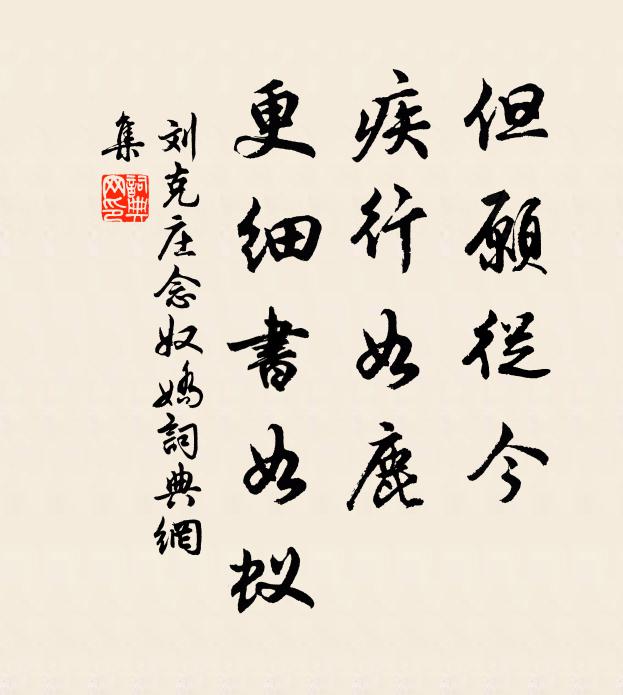 但願從今
疾行如鹿
更细書如蚁
刘克庄念奴嬌詞典網
集
詞典網印